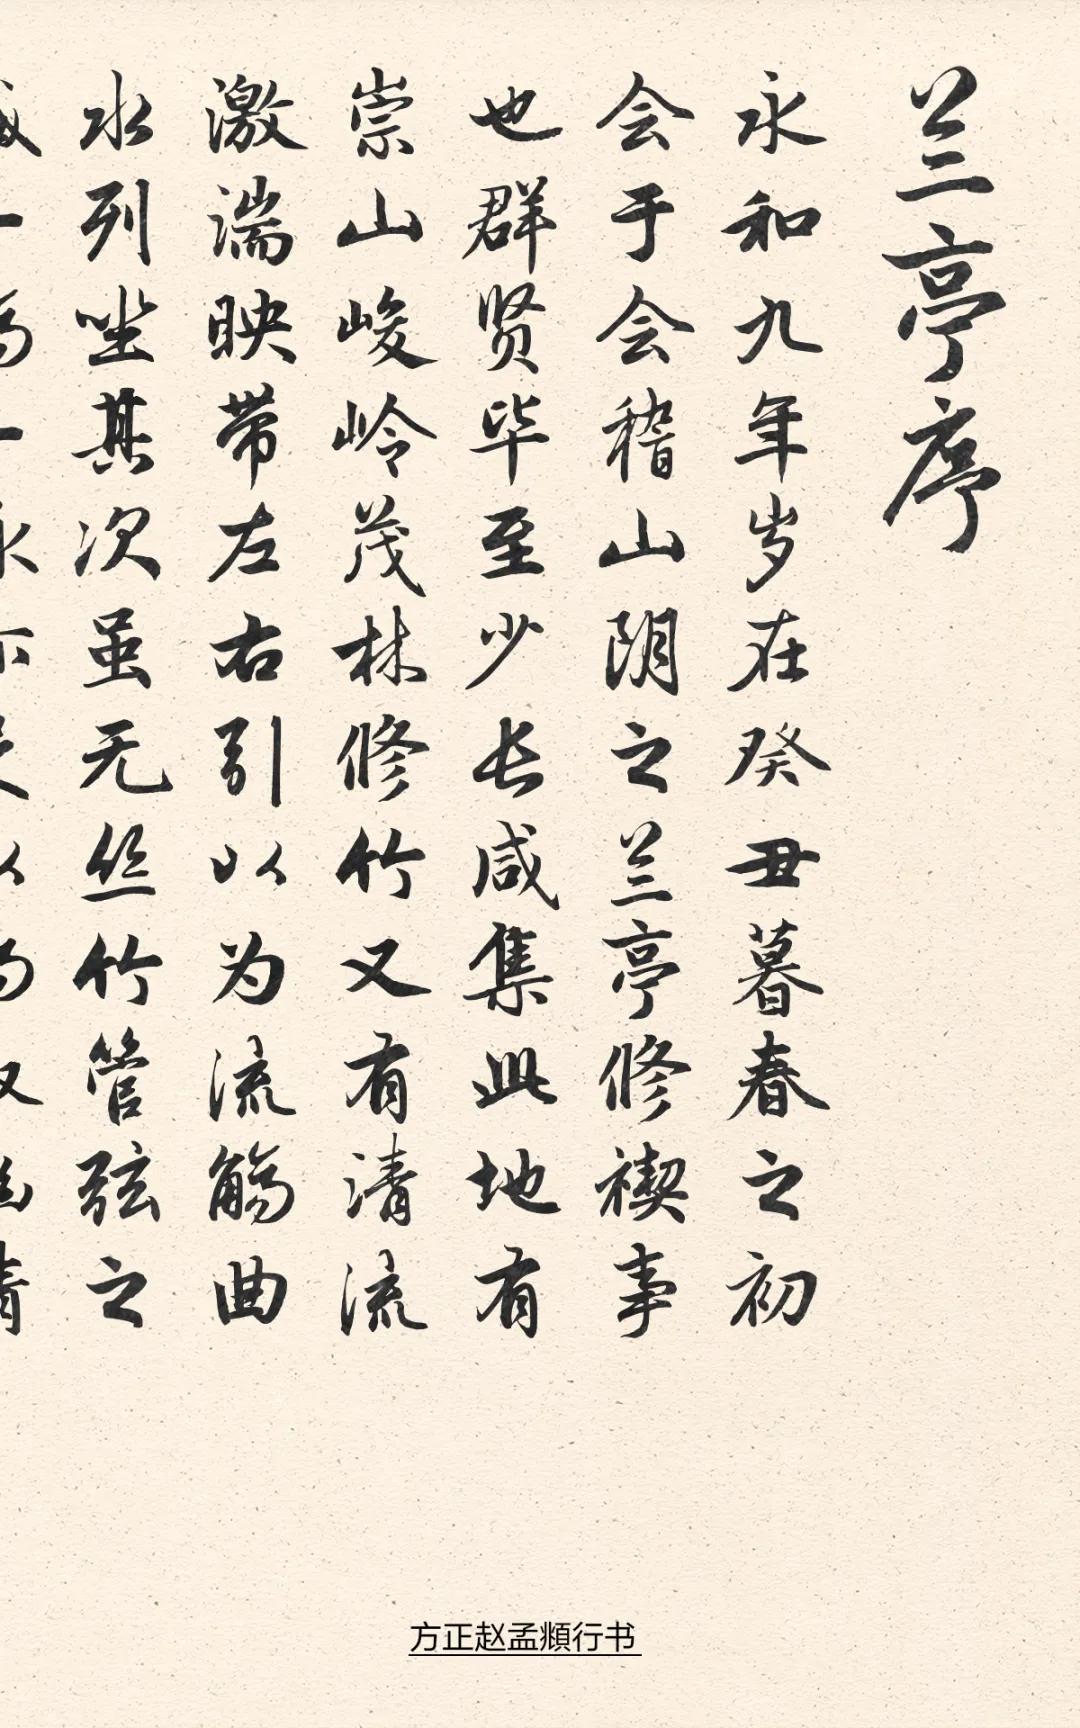 兰亭序
永和九年岁在癸丑暮春之初
会于会稽山阴之兰亭修禊事
也群贤毕至少长咸集此地有
崇山峻岭茂林修竹又有清流
激湍映带左右引以为流觞曲
水列坐其次虽无丝竹管弦之
方正赵孟頫行书